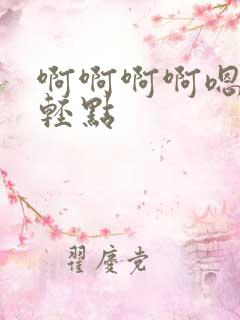 啊啊啊啊嗯
輕點
翟慶党